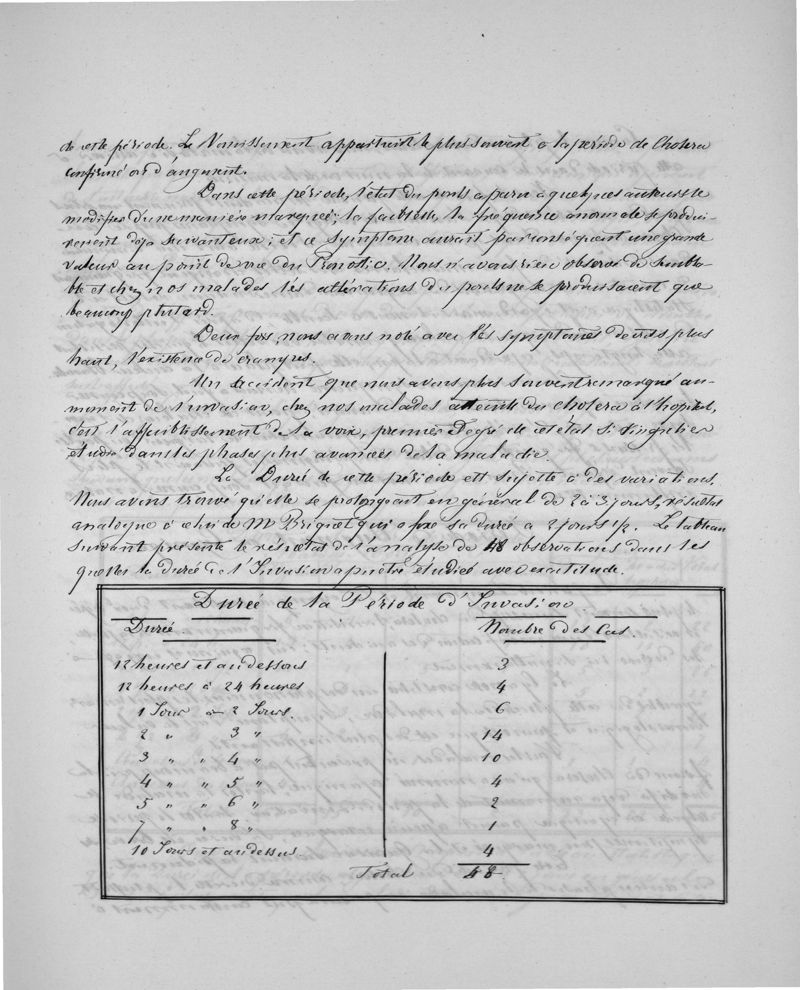 de cette période. Le Vomissement appartient le plus souvent à la période de Cholera
confirmé ou d'augment.
Dans cette période, l'état du pouls a paru à quelques auteurs se
modifier d'une manière marquée; la faiblesse, la fréquence anormale se produi-
raient déja suivant eux; et ce symptome aurait par conséquent une grande
valeur au point de vue du Pronostic. Nous n'avons rien observé de sembla-
ble et chez nos malades les altérations du pouls ne se produisaient que
beaucoup plus tard.
Deux fois, nous avons noté avec les symptomes décrits plus
haut, l'existence de crampes.
Un accident que nous avons plus souvent remarqué au
moment de l'invasion, chez nos malades atteints du choléra à l'hopital,
c'est l'affaiblissement de la voix, premier degré de cet état si singulier
étudié dans les phases plus avancées de la maladie.
La Durée de cette période est sujette à des variations.
Nous avons trouvé qu'elle se prolongeait en général de 2 à 3 jours, résultat
analogue à celui de Mr Briquet qui a fixé sa durée à 2 jours 1/2. Le tableau
suivant présente le résultat de l'analyse de 48 observations dans les
quelles la durée de l'Invasion a pu être étudiée avec exactitude.
Durée de la Période d'Invasion
Durée Nombre des Cas.
12 heures et au dessous 3
12 heures à 24 heures 4
1 Jour à 2 Jours. 6
2 " 3 " 14
3 " " 4 " 10
4 " " 5 " 4
5 " " 6 " 2
7 " " 8 " 1
10 Jours et au dessus. 4
Total 48